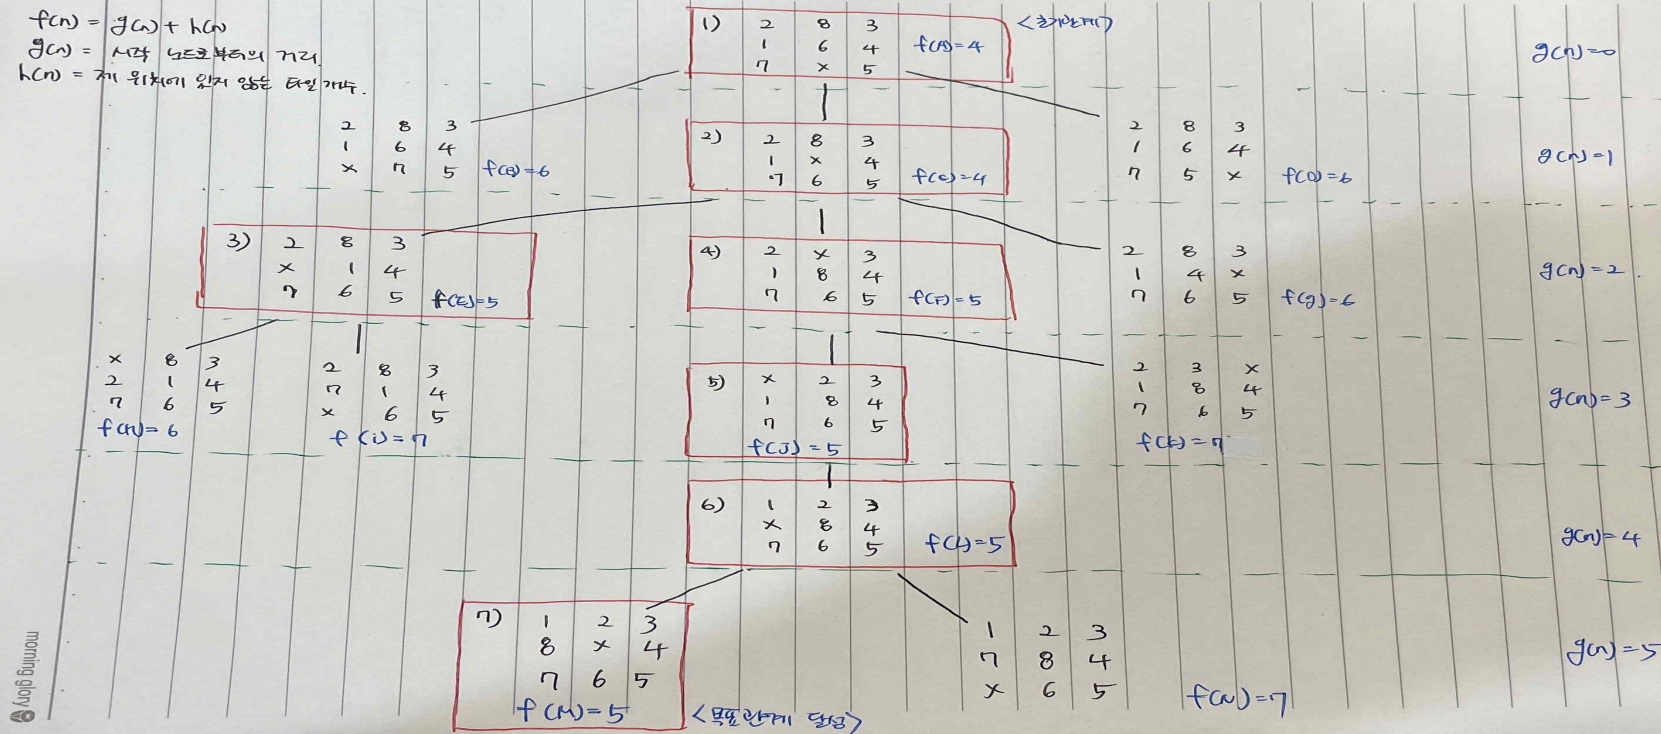 f(n) = g(n) + h(n)
g(n) = 시작 노드로부터의 거리
h(n) = 제 위치에 있지 않은 타일 개수.
1) 2 8 3 <초기단계>
1 6 4 f(A)=4
7 x 5
g(n)=0
2 8 3
1 6 4
x 7 5 f(B)=6
2) 2 8 3
1 x 4
7 6 5 f(C)=4
2 8 3
1 6 4
7 5 x f(D)=6
g(n)=1
3) 2 8 3
x 1 4
7 6 5 f(E)=5
4) 2 x 3
1 8 4
7 6 5 f(F)=5
2 8 3
1 4 x
7 6 5 f(g)=6
g(n)=2
x 8 3
2 1 4
7 6 5
f(H)=6
2 8 3
7 1 4
x 6 5
f(i)=7
5) x 2 3
1 8 4
7 6 5
f(J)=5
2 3 x
1 8 4
7 6 5
f(k)=7
g(n)=3
6) 1 2 3
x 8 4
7 6 5 f(L)=5
g(n)=4
7) 1 2 3
8 x 4
7 6 5
f(M)=5 <목표단계 달성>
1 2 3
7 8 4
x 6 5
f(N)=7
g(n)=5
morning glory